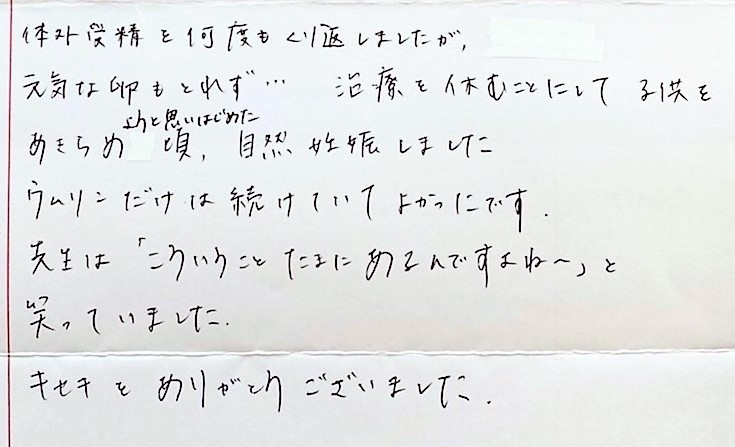 体外受精を何度もくり返しましたが、
元気な卵もとれず… 治療を休むことにして 子供を
ようと思いはじめた
あきらめ 頃、自然妊娠しました
ウムリンだけは続けていてよかったです.
先生は「こういうことたまにあるんですよね〜」と
笑っていました.
キセキを ありがとうございました.